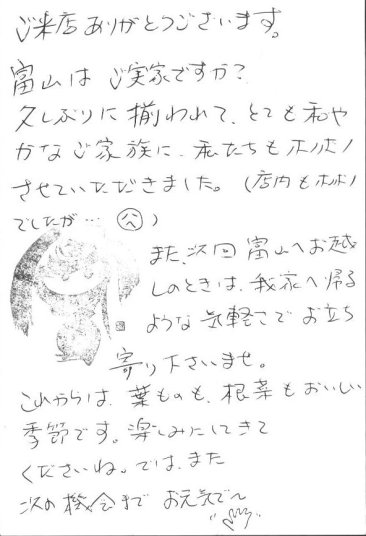 ご来店ありがとうございます。
富山は ご実家ですか?
久しぶりに揃われて、とても和や
かなご家族に、私たちもホノボノ
させていただきました。(店内もホノボノ
でしたが… )
また、次回 富山へお越
しのときは、我家へ帰る
ような 気軽さで お立ち
寄り下さいませ。
これからは、葉ものも、根菜もおいしい
季節です。楽しみにしてきて
くださいね。では、また
次の機会まで お元気で〜